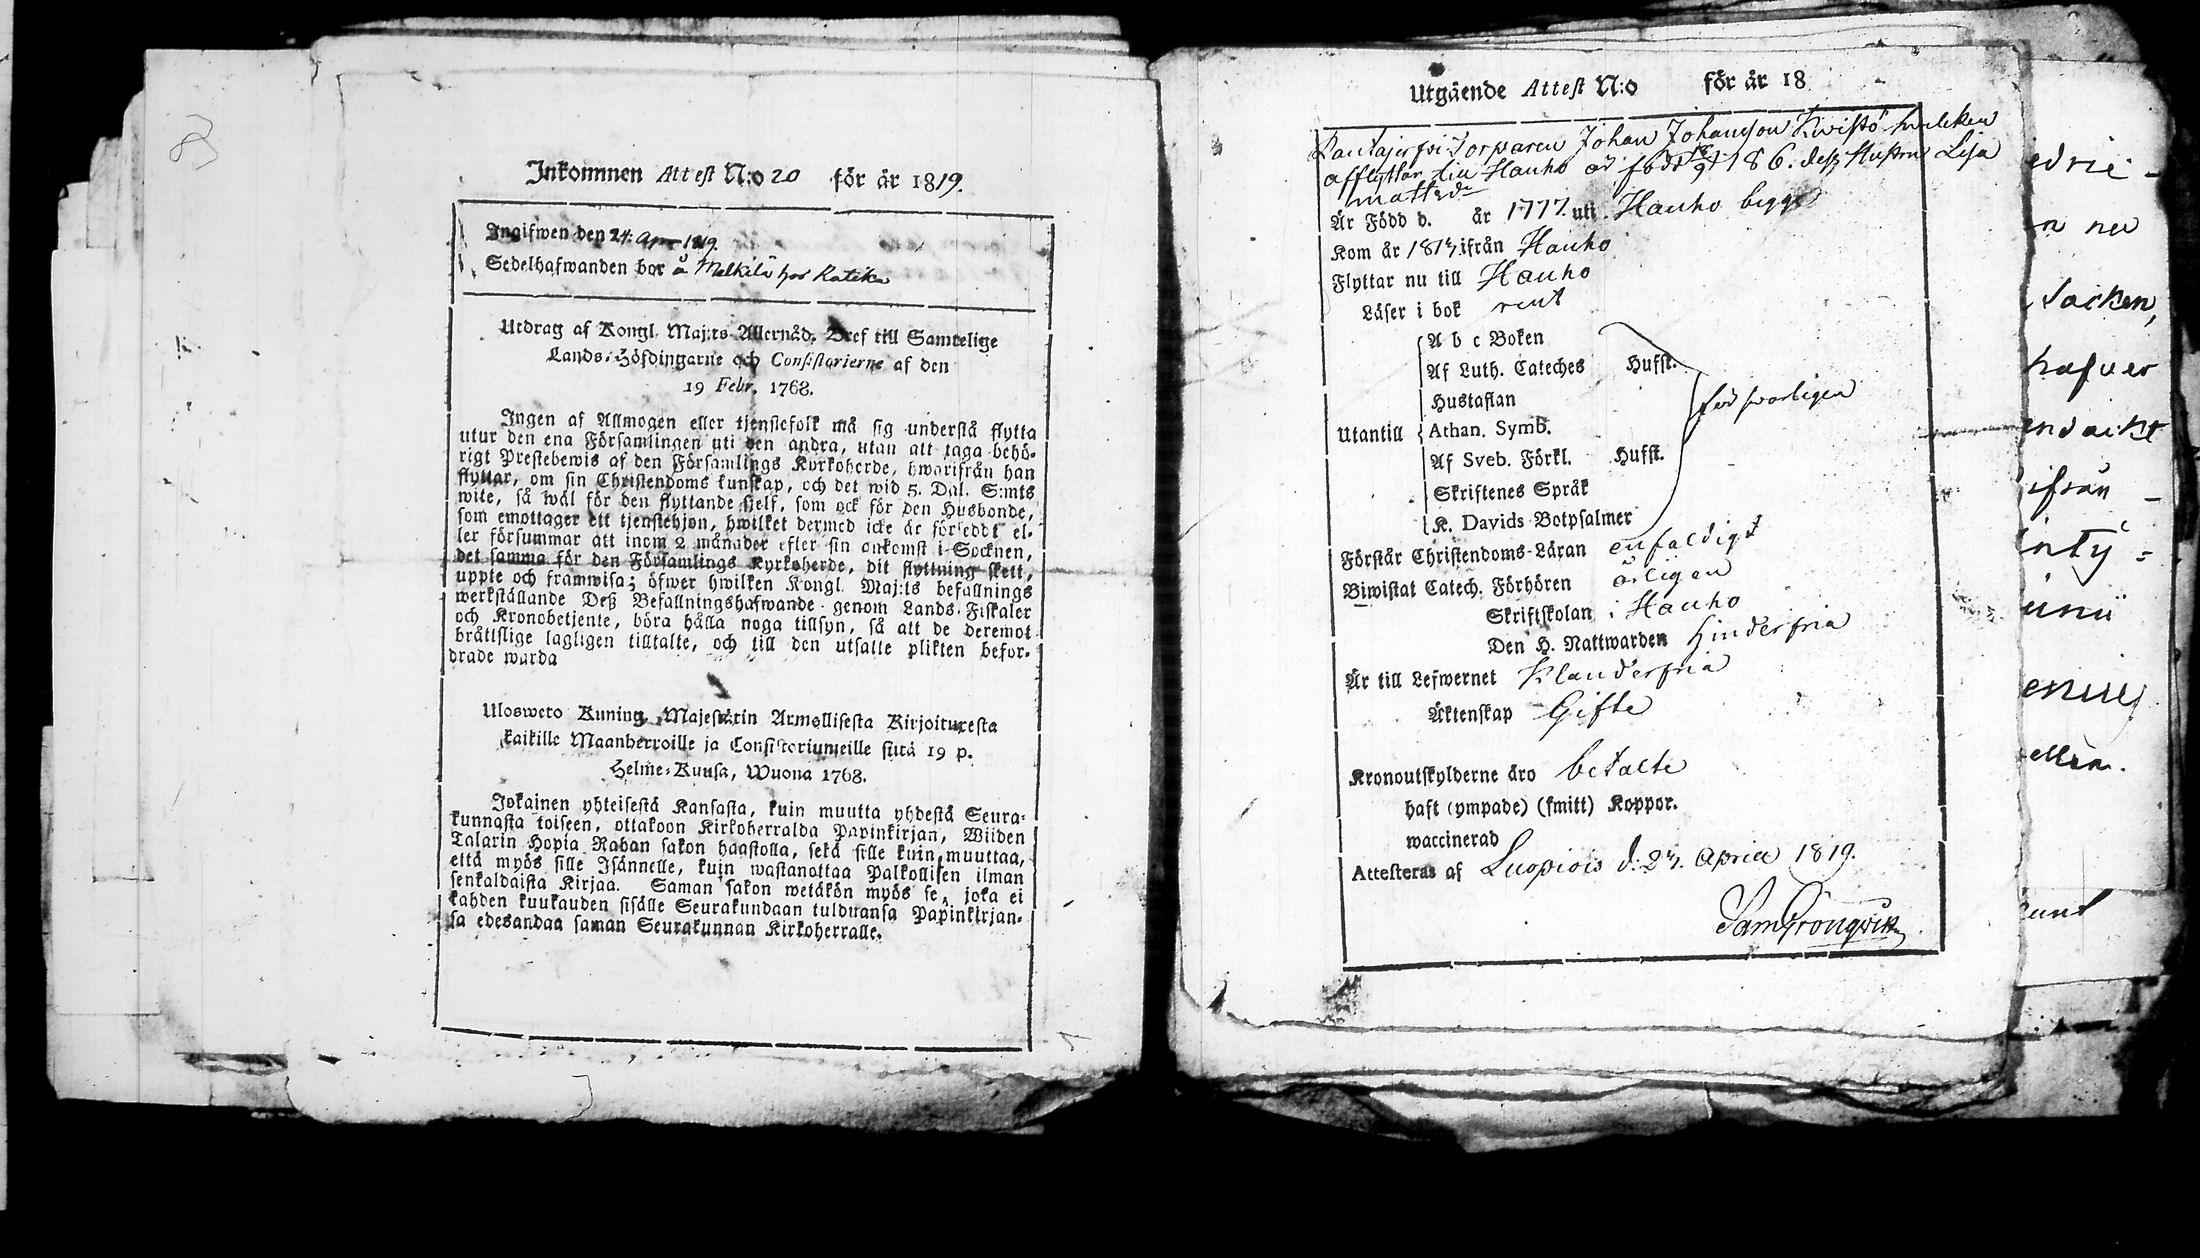 Inkommen Attest N:o 20 för år 1819.
Ingifwen den 24: Apr 1819.
Sedelhafwanden bor å Melkilä hos Ratika
Utdrag af Kongl. Maj:ts Allernåd. Bref till Samtelige
Lands-Höfdingarne och Consistorierne af den
19 Febr. 1768.
Ingen af Allmogen eller tjenstefolk må sig understå flytta
utur den ena Församlingen uti den andra, utan att taga behö-
rigt Prestebewis af den Församlings Kyrkoherde, hwarifrån han
flyttar, om sin Christendoms kunskap, och det wid 5. Dal. S:mts
wite, så wäl för den flyttande sjelf, som ock för den Husbonde,
som emottager ett tjenstehjon, hwilket dermed icke är förseddt el-
ler försummar att inom 2 månader efter sin ankomst i Socknen,
det samma för den Församlings Kyrkoherde, dit flyttning skett,
uppte och framwisa; öfwer hwilken Kongl. Maj:ts befallnings
werkställande Deß Befallningshafwande genom Lands-Fiskaler
och Kronobetjente, böra hålla noga tillsyn, så att de deremot
bråttslige lagligen tilltalte, och till den utsatte plikten befor-
drade warda
Ulosweto Kuning. Majestetin Armollisesta Kirjoituxesta
kaikille Maanherroille ja Consistoriumeille siitä 19 p.
Helme-Kuusa, Wuona 1768.
Jokainen yhteisestä Kansasta, kuin muutta yhdestä Seura-
kunnasta toiseen, ottakoon Kirkoherralda Papinkirjan, Wiiden
Talarin Hopia Rahan sakon haastolla, sekä sille kuin muuttaa,
että myös sille Isännelle, kuin wastanottaa Palkollisen ilman
senkaldaista Kirjaa. Saman sakon wetäkön myös se, joka ei
kahden kuukauden sisälle Seurakundaan tulduansa Papinkirjan-
sa edesandaa saman Seurakunnan Kirkoherralle.
Utgående Attest N:o för år 18
Torparen Johan Johansson Kwistö hwilcken
afflyttar till Hauho är född 186. deß Hustru Lisa
mattsdr
Är Född d. år 1777. uti Hauho
Kom år 1817 ifrån Hauho
Flyttar nu till Hauho
Läser i bok rent
A b c Boken
Af Luth. Cateches Hufst.
Hustaflan
Utantill Athan. Symb. försvarligen
Af Sveb. Förkl. Hufst.
Skriftenes Språk
K. Davids Botpsalmer
Förstår Christendoms-Läran enfaldigt
Biwistat Catech. Förhören årligen
Skriftskolan i Hauho
Den H. Nattwarden hinderfria
Är till Lefwernet Klanderfria
Äktenskap Gifte
Kronoutskylderne äro betalte
haft (ympade) (smitt) Koppor.
waccinerad
Attesteras af Luopiois d. 23. Aprill 1819.
Sam Grönqvist
edrie -
hafver
ifrån -